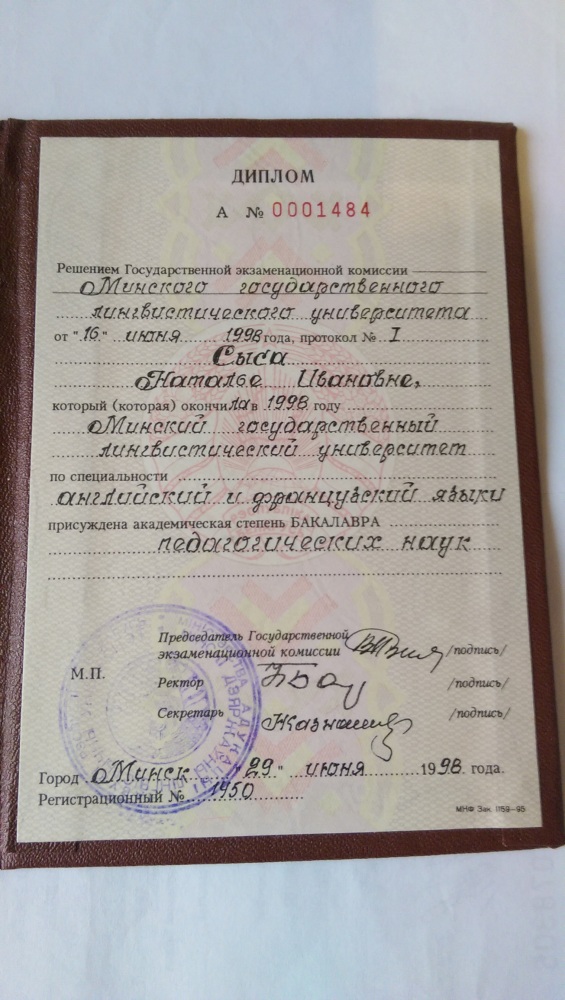 ДИПЛОМ
А № 0001484
Решением Государственной экзаменационной комиссии
Минского государственного
лингвистического университета
от "16" июня 1998 года, протокол № I
Сыса
Наталье Ивановне,
который (которая) окончила в 1998 году
Минский государственный
лингвистический университет
по специальности
английский и французский языки
присуждена академическая степень БАКАЛАВРА
педагогических наук
Председатель Государственной
экзаменационной комиссии /подпись/
М.П.
Ректор /подпись/
Секретарь /подпись/
Город Минск "29" июня 1998 года.
Регистрационный № 1950
МНФ Зак. 1159-95